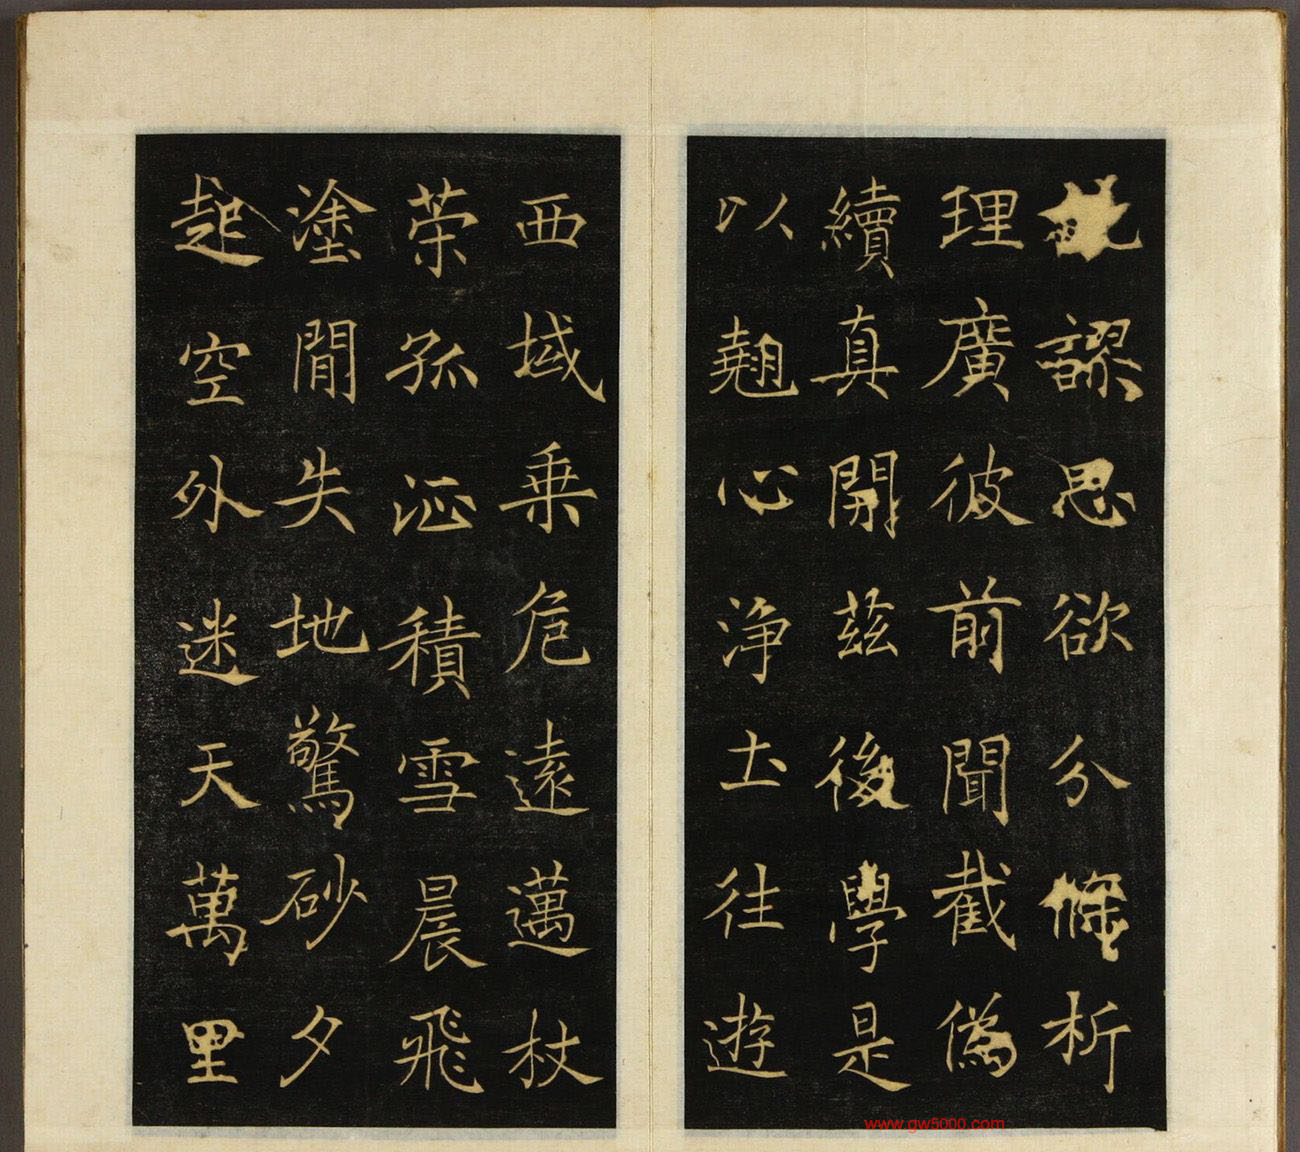 謬思欲分條析
理廣彼前聞截偽
續真開茲後學是
以翹心浄土往遊
西域乗危遠邁杖
策孤征積雪晨飛
塗間失地驚砂夕
起空外迷天萬里
www.gw5000.com